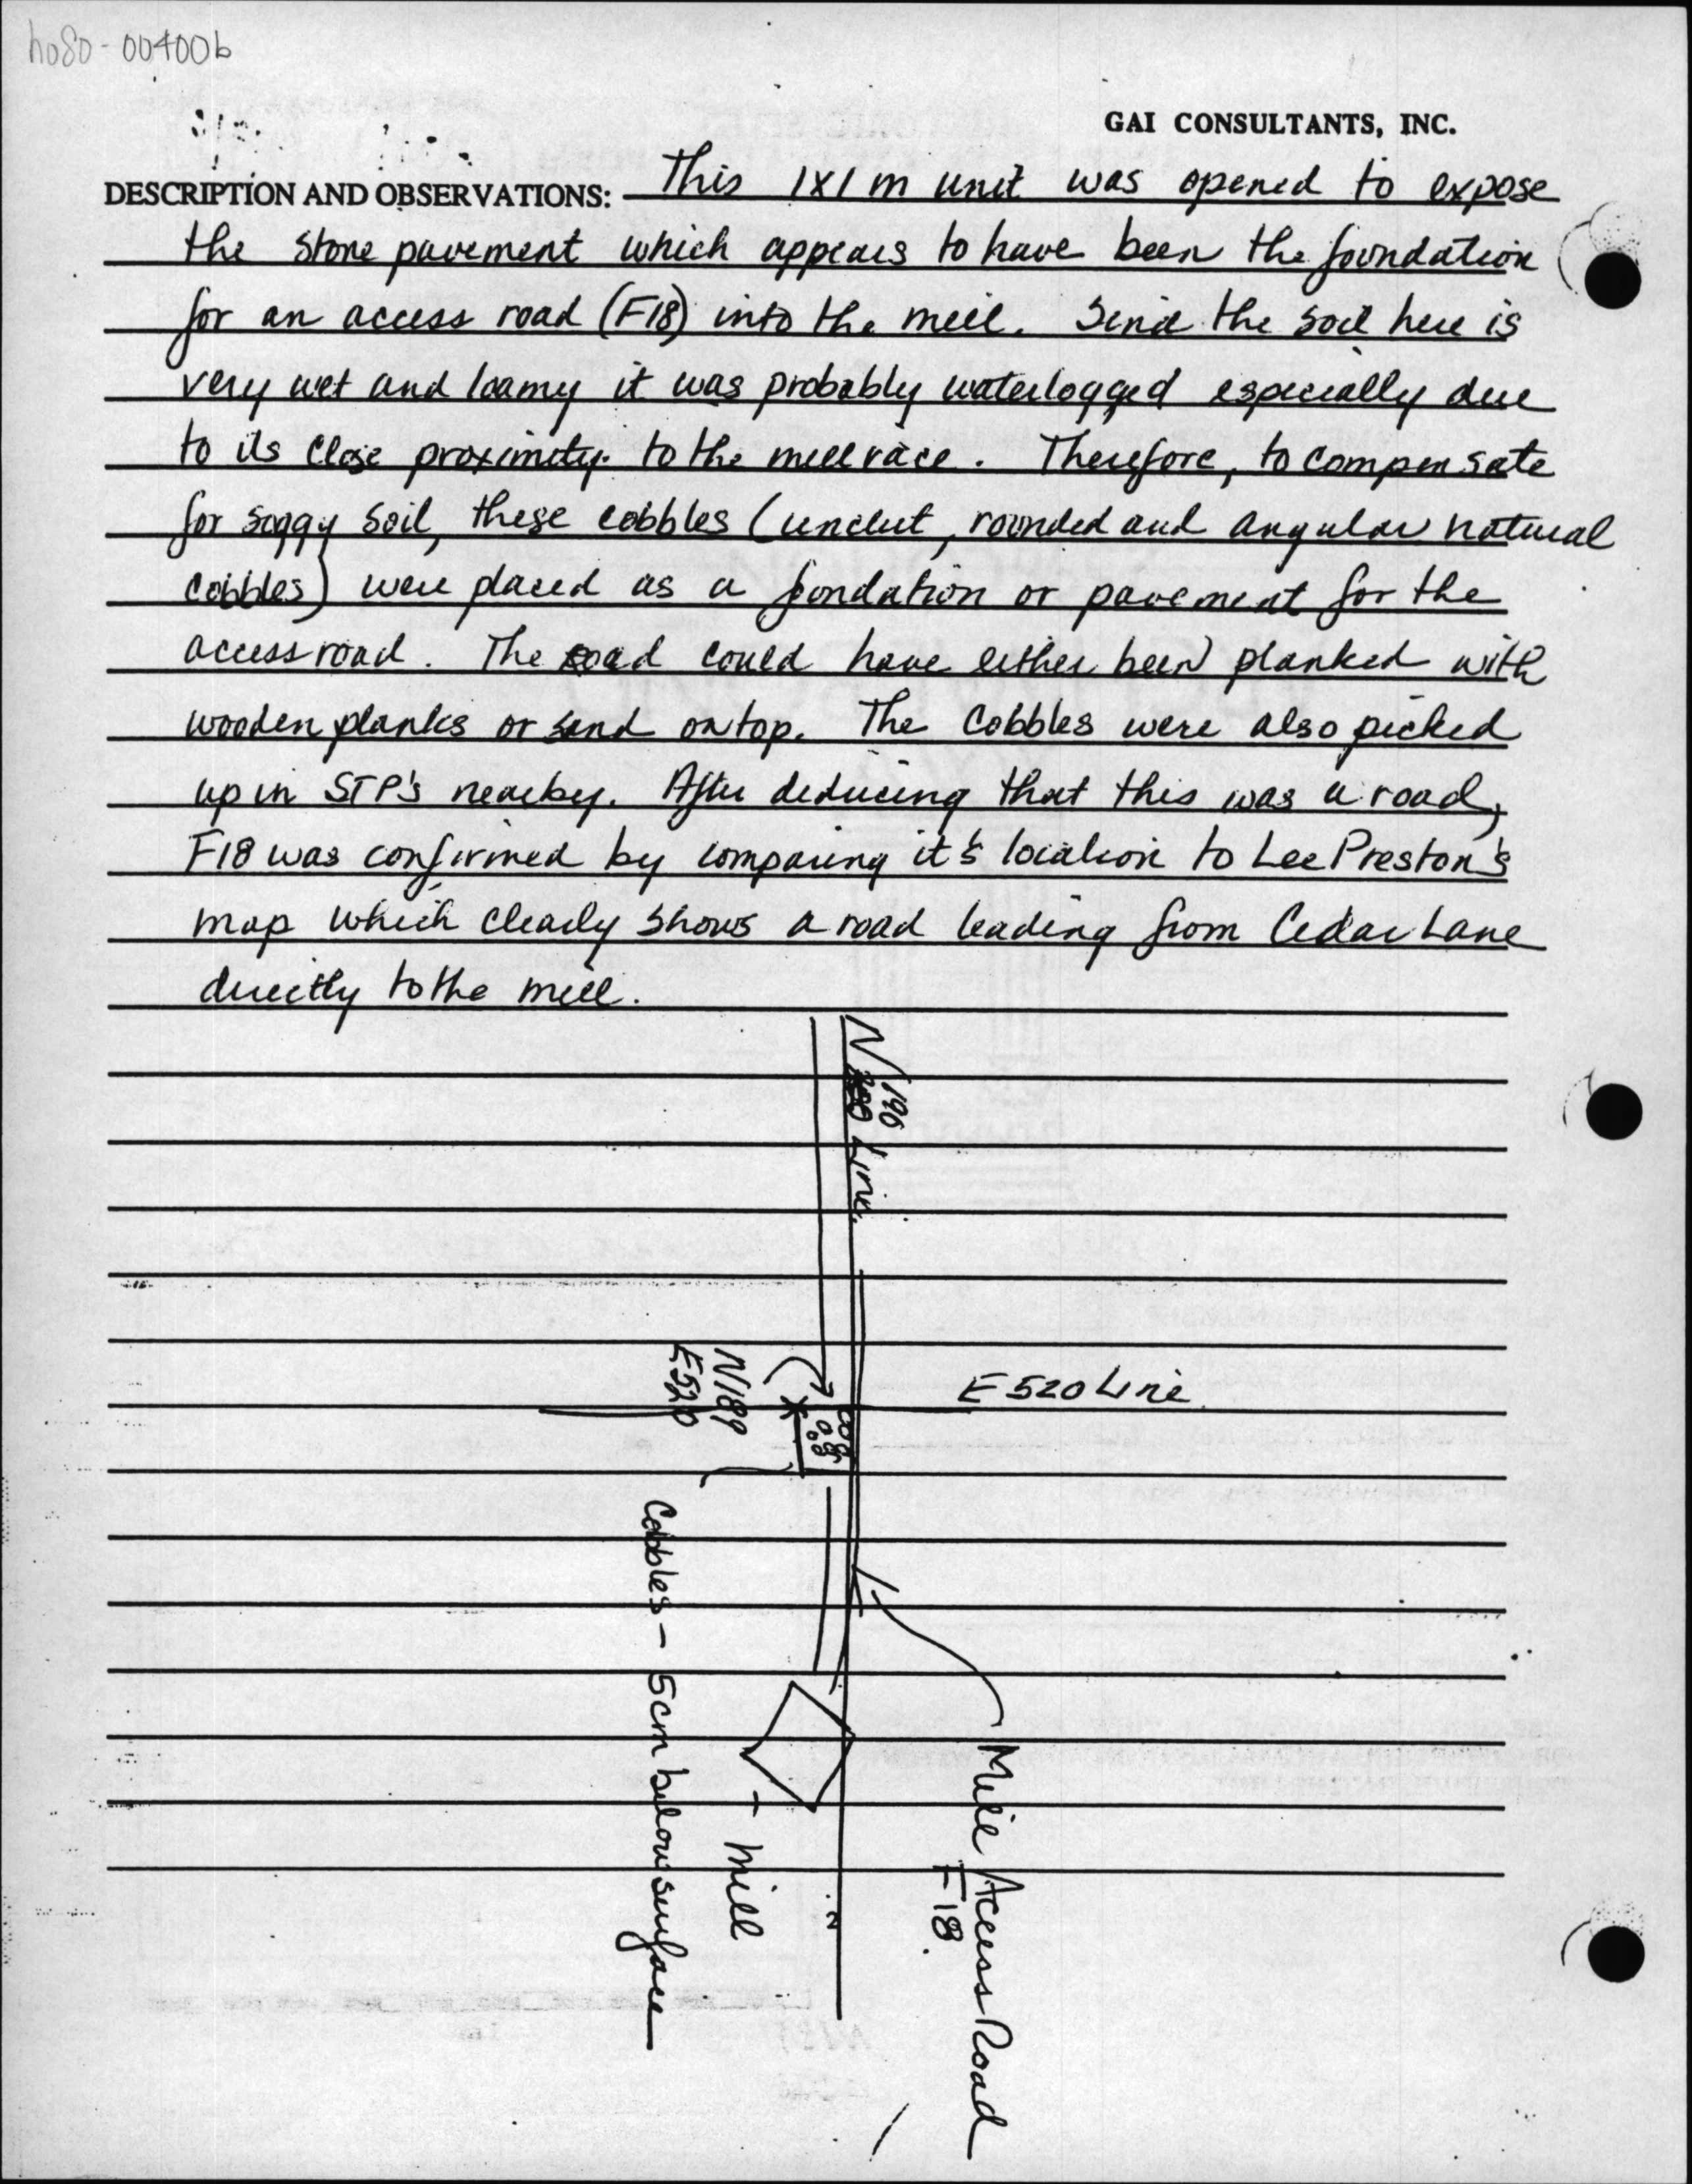 h080-004006
GAI CONSULTANTS, INC.
DESCRIPTION AND OBSERVATIONS: This 1x1 m unit was opened to expose
the stone pavement which appears to have been the foundation
for an access road (F18) into the mill. Since the soil here is
very wet and loamy it was probably waterlogged especially due
to its close proximity to the millrace. Therefore, to compensate
for soggy soil, these cobbles (uncut, rounded and angular natural
cobbles) were placed as a fondation or pavement for the
access road. The road could have either been planked with
wooden planks or sand on top. The cobbles were also picked
up in STP's nearby. After deducing that this was a road,
F18 was confirmed by comparing it's location to Lee Preston's
map which clearly shows a road leading from Cedar Lane
directly to the mill.
N 190 Line
N189
E520
E 520 Line
Cobbles - 5cm below surface
Mill
Mill Access Road
F18.